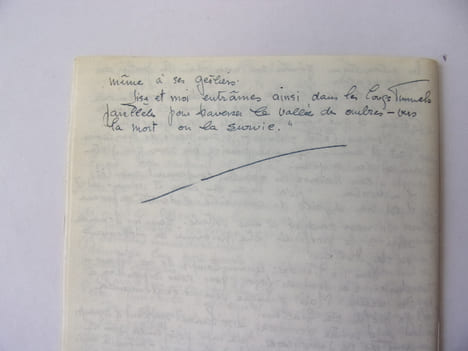 même à ses geôliers.
Lisa et moi entrâmes ainsi dans les longs Tunnels
parallèles pour traverser la vallée des ombres – vers
la mort ou la survie."